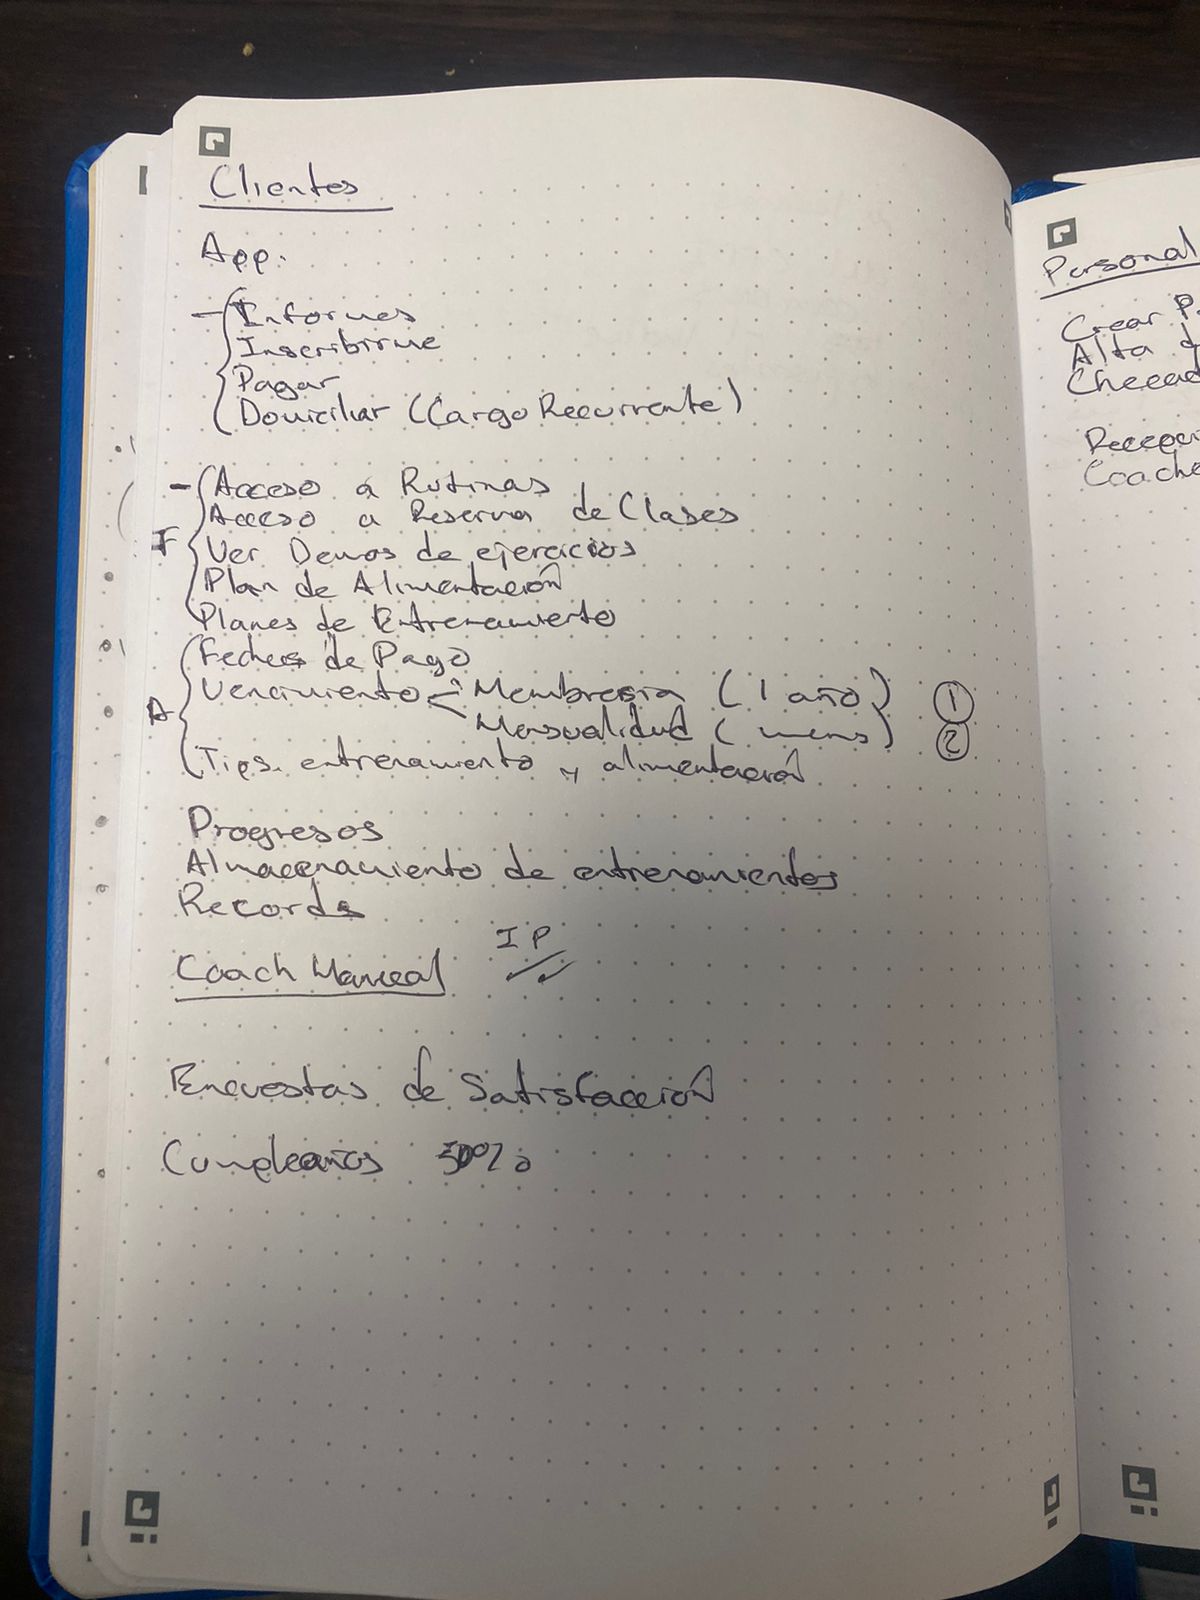 Clientes
App.
- Informes
Inscribirme
Pagar
Domiciliar (Cargo Recurrente)
- Acceso a Rutinas
Acceso a Reserva de Clases
I Ver Demos de ejercicios
Plan de Alimentación
Planes de Entrenamiento
Fechas de Pago
A Vencimiento < Membresia (1 año) 1
Mensualidad ( mens) 2
Tips. entrenamiento y alimentación
Progresos
Almacenamiento de entrenamientos
Records
Coach Manual IP
Encuestas de Satisfacción
Cumpleaños 50%
Personal
Crear P
Alta d
Checad
Recepci
Coache